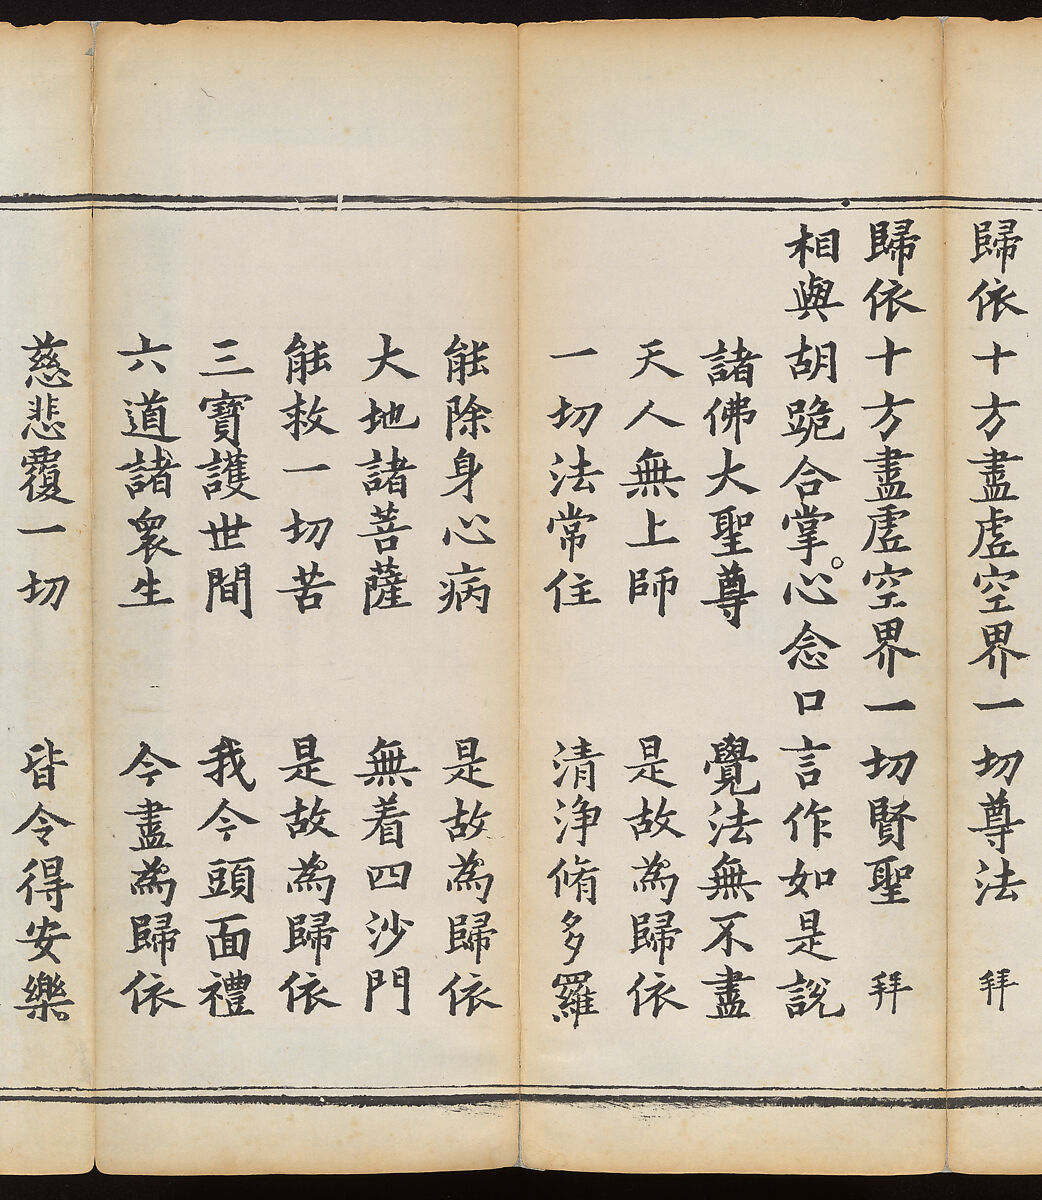 歸依十方盡虛空界一切尊法 拜
歸依十方盡虛空界一切賢聖 拜
相與胡跪合掌。心念口言作如是說
諸佛大聖尊 覺法無不盡
天人無上師 是故為歸依
一切法常住 清淨脩多羅
能除身心病 是故為歸依
大地諸菩薩 無着四沙門
能救一切苦 是故為歸依
三寶護世間 我今頭面禮
六道諸衆生 今盡為歸依
慈悲覆一切 皆令得安樂